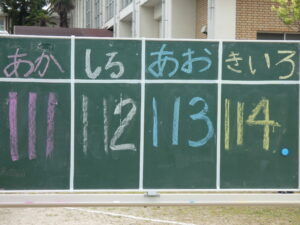 あか しろ あおきいろ
111 112 113 114